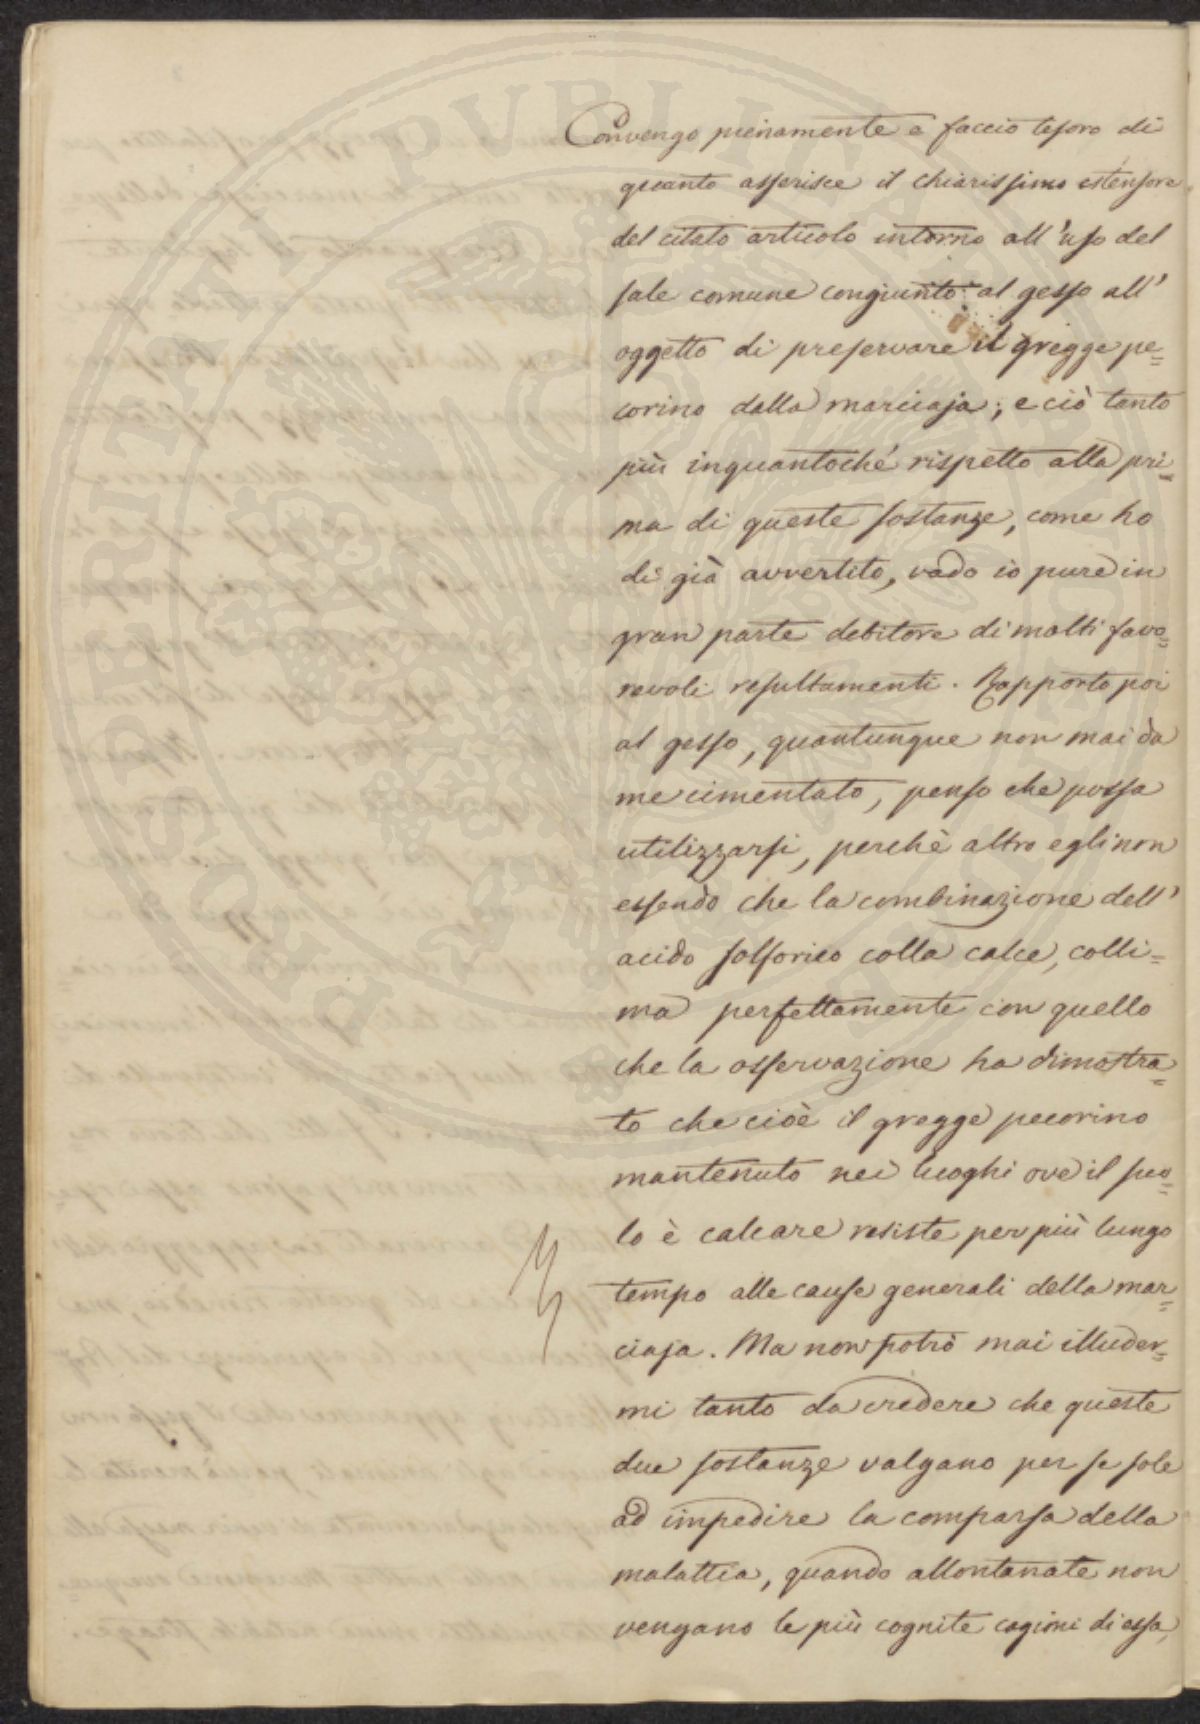 Convengo pienamente e faccio tesoro di
quanto asserisce il chiarissimo estensore
del citato articolo intorno all'uso del
sale comune congiunto al gesso all'
oggetto di preservare il gregge pe=
corino dalla marciaja; e ciò tanto
più inquantoché rispetto alla pri=
ma di queste sostanze, come ho
di già avvertito, vado io pure in
gran parte debitore di molti favo=
revoli resultamenti. Rapporto poi
al gesso, quantunque non mai da
me cimentato, penso che possa
utilizzarsi, perchè altro egli non
essendo che la combinazione dell'
acido solforico colla calce, colli=
ma perfettamente con quello
che la osservazione ha dimostra=
to che cioè il gregge pecorino
mantenuto nei luoghi ove il suo=
lo è calcare resiste per più lungo
tempo alle cause generali della mar=
ciaja. Ma non potrò mai illuder=
mi tanto da credere che queste
due sostanze valgano per se sole
ad impedire la comparsa della
malattia, quando allontanate non
vengano le più cognite cagioni di essa,
PROSPERITATI PUBLICAE